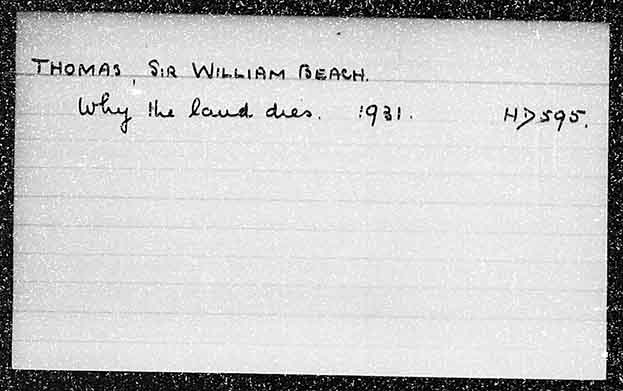 THOMAS, SIR WILLIAM BEACH.
Why the land dies. 1931. HD595.